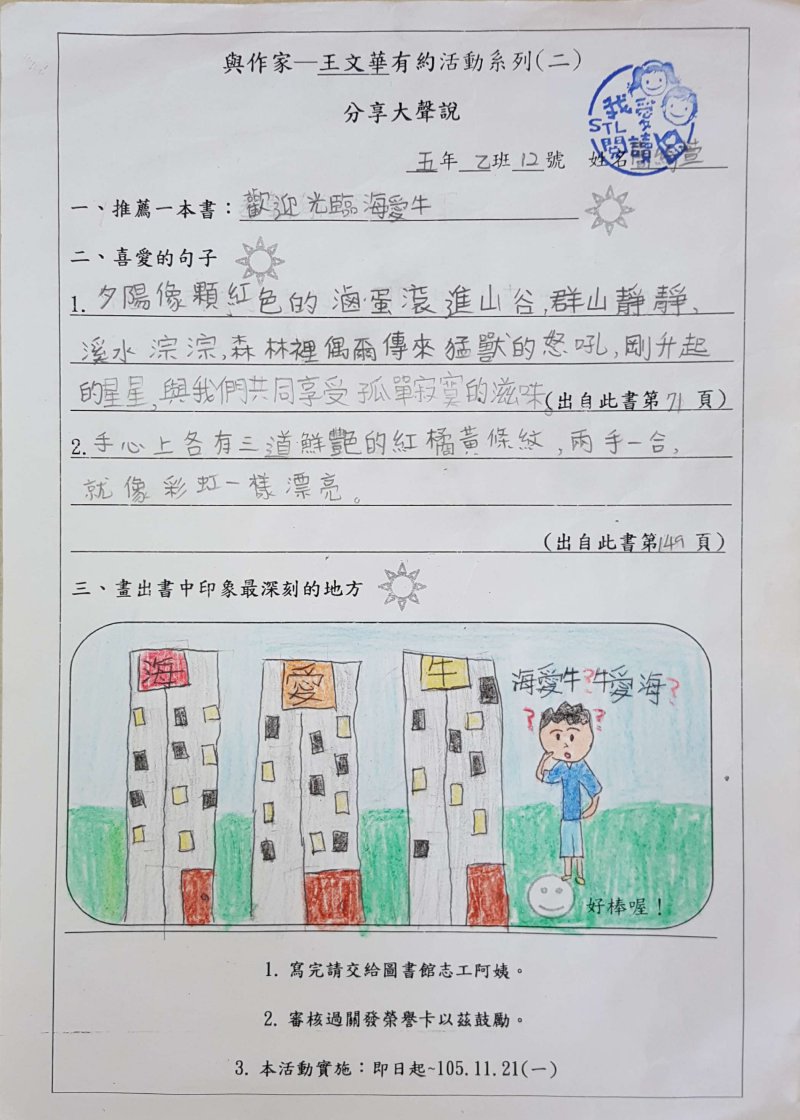 與作家—王文華有約活動系列(二)
分享大聲說
我愛
STL
閱讀
五年乙班12號 姓名
一、推薦一本書：歡迎光臨海愛牛
二、喜愛的句子
1. 夕陽像顆紅色的滷蛋滾進山谷,群山靜靜、
溪水淙淙,森林裡偶爾傳來猛獸的怒吼,剛升起
的星星,與我們共同享受孤單寂寞的滋味。(出自此書第71頁)
2. 手心上各有三道鮮艷的紅橘黃條紋,兩手一合,
就像彩虹一樣漂亮。
(出自此書第149頁)
三、畫出書中印象最深刻的地方
海 愛 牛
海愛牛?牛愛海?
? ?
好棒喔！
1. 寫完請交給圖書館志工阿姨。
2. 審核過關發榮譽卡以茲鼓勵。
3. 本活動實施：即日起~105.11.21(一)